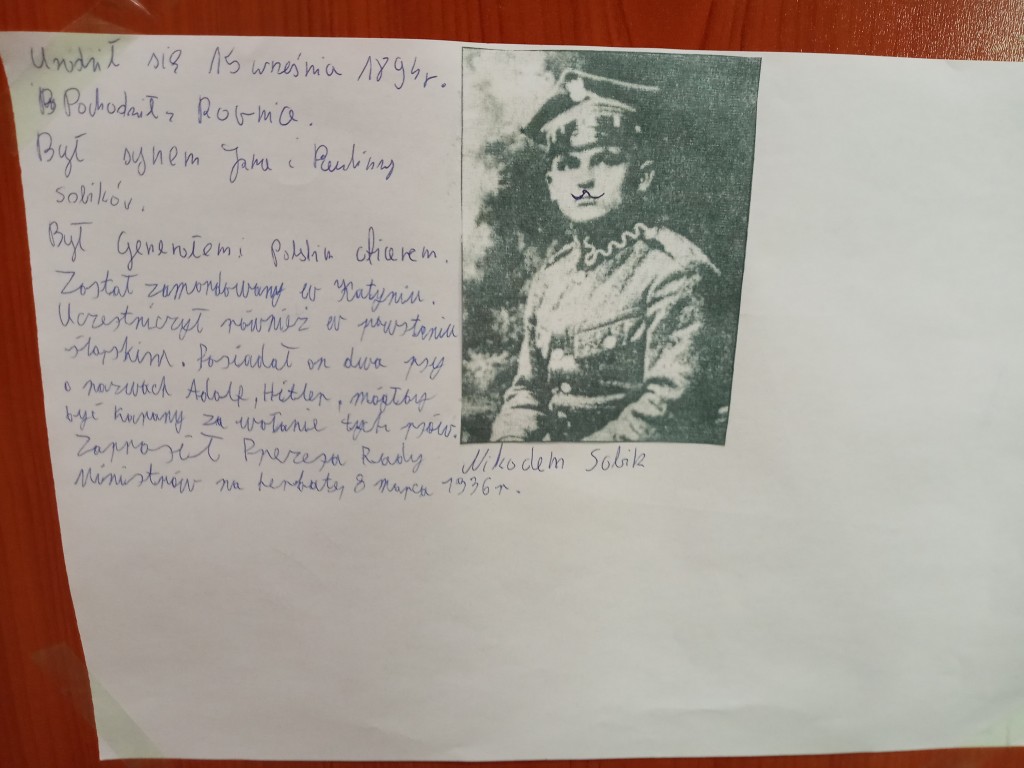 Urodził się 15 września 1894r.
Pochodził z Rovnia.
Był synem Jana i Pauliny
Sobików.
Był Generałem i Polskim oficerem.
Został zamordowany w Katyniu.
Uczestniczył również w powstaniu
śląskim. Posiadał on dwa psy
o nazwach Adolf, Hitler, mógłby
być karany za wołanie tych psów.
Zaprosił Prezesa Rady
Ministrów na herbatę, 8 marca 1936r.
Nikodem Sobik